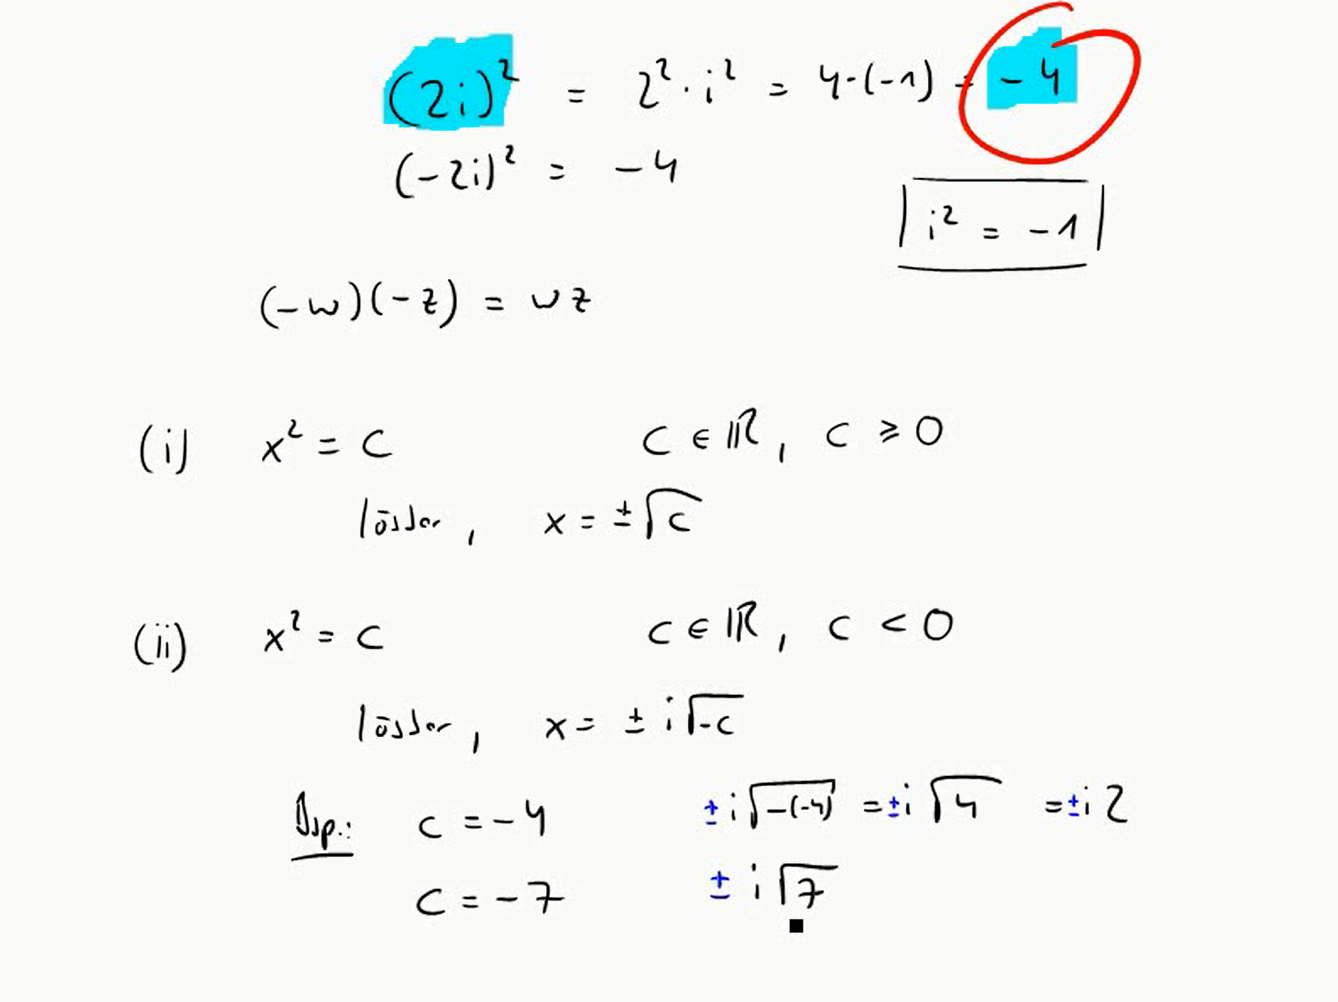 (2i)² = 2² · i² = 4·(-1) = -4
(-2i)² = -4
i² = -1
(-w)(-z) = wz
(i) x² = c c ∈ ℝ, c ≥ 0
lösbar, x = ±√c
(ii) x² = c c ∈ ℝ, c < 0
lösbar, x = ± i√-c
Bsp.: c = -4 ± i√-(-4) = ± i√4 = ± i2
c = -7 ± i√7